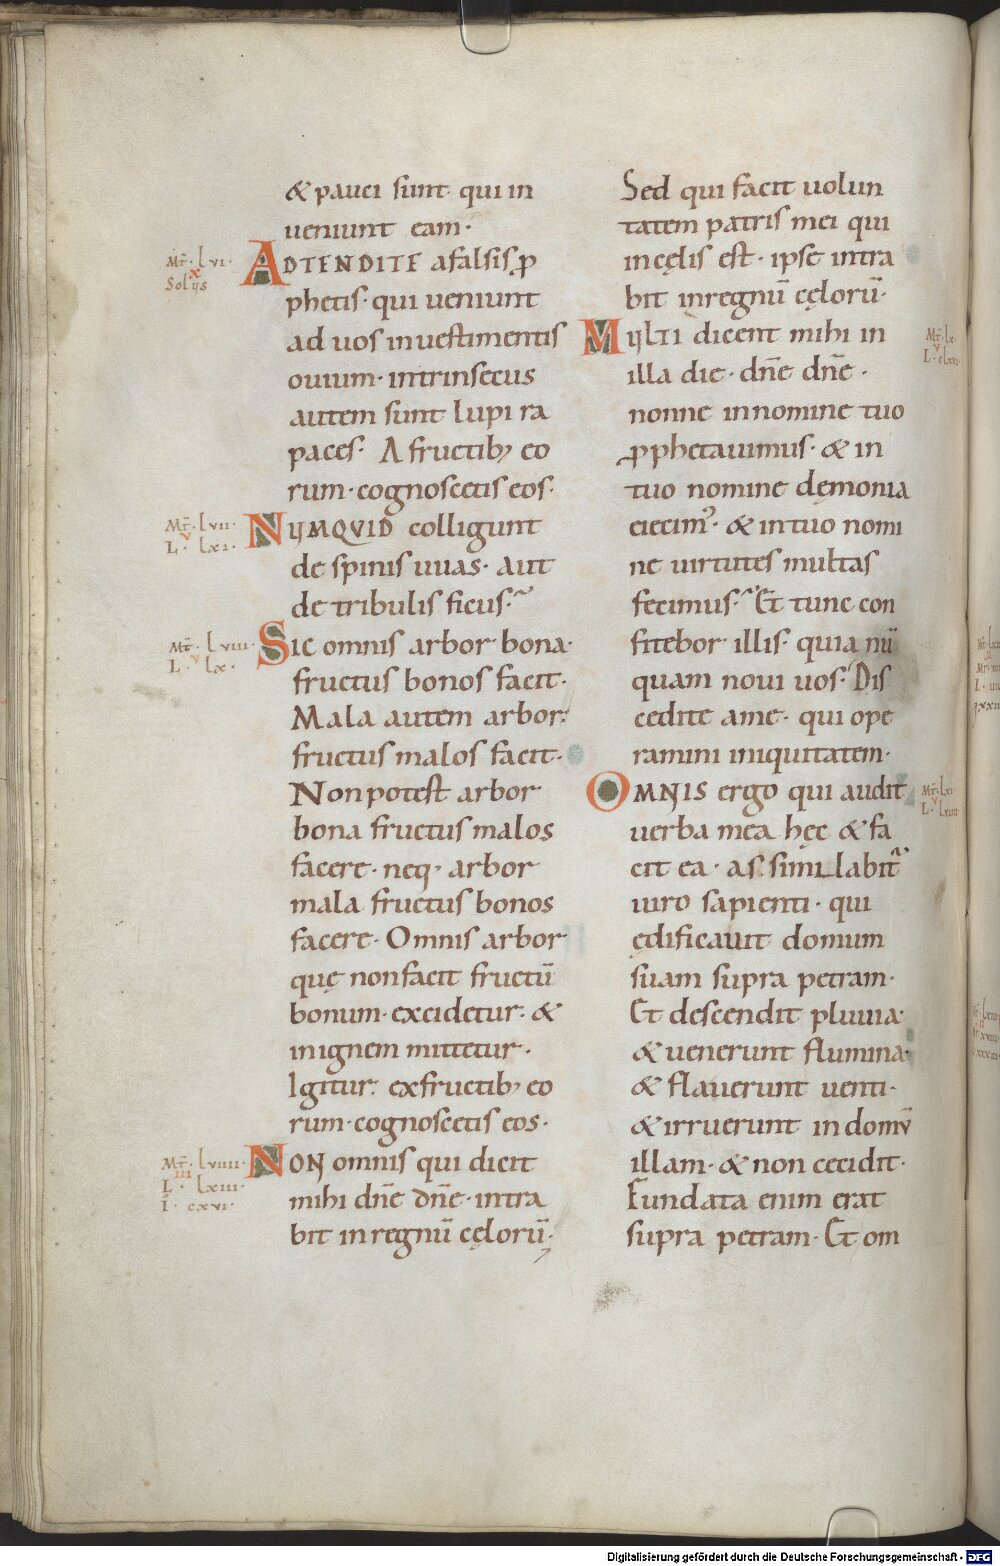 & pauci sunt qui in
ueniunt eam·
Mt̄·lvi·
x
Solijs
ADTENDITE afalsis ꝓ
phetis· qui ueniunt
ad uos inuestimentis
ouium· intrinsecus
autem sunt lupi ra
paces· A fructib; eo
rum· cognoscetis eos·
Mt̄·lvii·
v
L· lxi·
NUMQVID colligunt
de spinis uuas· aut
de tribulis ficus·~
Mt̄·lviii·
v
L· lx·
SIC omnis arbor bona·
fructus bonos facit·
Mala autem arbor·
fructus malos facit·
Non potest arbor
bona fructus malos
facere· neq; arbor
mala fructus bonos
facere· Omnis arbor
quę non facit fructū
bonum· excidetur· &
inignem mittetur·
Igitur· exfructib; eo
rum· cognoscetis eos·
Mt̄·lviiii·
iii
L· lxiii·
I· cxvi·
NON omnis qui dicit
mihi dn̄e dn̄e· intra
bit in regnū cęlorū·
Sed qui facit uolun
tatem patris mei qui
incęlis est· ipse intra
bit inregnū cęlorū·
Mt̄·lx·
v
MULTI dicent mihi in
illa die· dn̄e dn̄e·
nonne innomine tuo
ꝓphetauimus· & in
tuo nomine dęmonia
eiecim᾽· & intuo nomi
ne uirtutes multas
fecimus·~ Et tunc con
fitebor illis· quia nū
quam noui uos· Dis
cedite ame· qui ope
ramini iniquitatem·
Mt̄·lxi·
v
L· lxiiii·
OMNIS ergo qui audit
uerba mea hęc & fa
cit ea· assimilabit᾽
uiro sapienti· qui
ędificauit domum
suam supra petram·
Et descendit pluuia·
& uenerunt flumina·
& flauerunt uenti·
& irruerunt in domū
illam· & non cecidit·
Fundata enim erat
supra petram· Et om
Digitalisierung gefördert durch die Deutsche Forschungsgemeinschaft - DFG